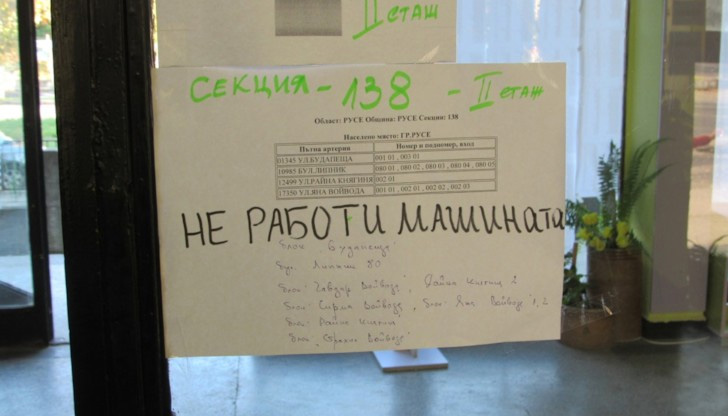 II етаж
СЕКЦИЯ - 138 - II етаж
Област: РУСЕ Община: РУСЕ Секция: 138
Населено място: ГР.РУСЕ
Пътна артерия Номер и подномер, вход
01345 УЛ.БУДАПЕЩА 001 01 , 003 01
10985 БУЛ.ЛИПНИК 080 01 , 080 02 , 080 03 , 080 04 , 080 05
12499 УЛ.РАЙНА КНЯГИНЯ 002 01
17350 УЛ.ЯНА ВОЙВОДА 001 01 , 002 01 , 002 02 , 002 03
НЕ РАБОТИ МАШИНАта
блок "Будапеща"
бул. Липник 80